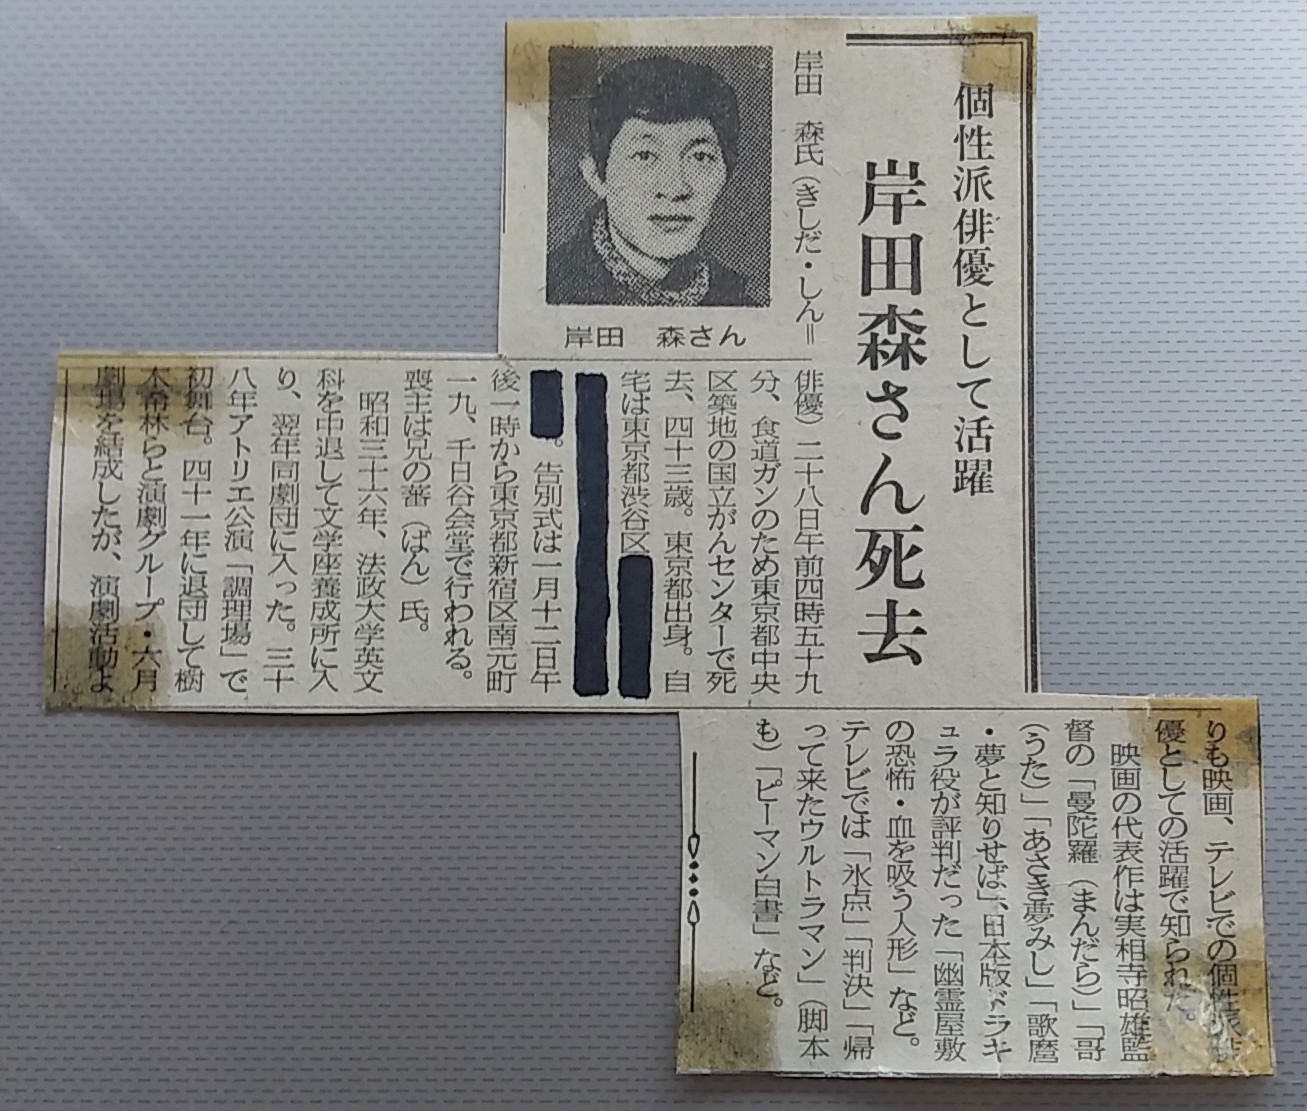 個性派俳優として活躍
岸田森さん死去
岸田　森さん
岸田　森氏（きしだ・しん＝
俳優）二十八日午前四時五十九
分、食道ガンのため東京都中央
区築地の国立がんセンターで死
去、四十三歳。東京都出身。自
宅は東京都渋谷区
。告別式は一月十二日午
後一時から東京都新宿区南元町
一九、千日谷会堂で行われる。
喪主は兄の蕃（ばん）氏。
昭和三十六年、法政大学英文
科を中退して文学座養成所に入
り、翌年同劇団に入った。三十
八年アトリエ公演「調理場」で
初舞台。四十一年に退団して樹
木希林らと演劇グループ・六月
劇場を結成したが、演劇活動よ
りも映画、テレビでの個性派俳
優としての活躍で知られた。
映画の代表作は実相寺昭雄監
督の「曼陀羅（まんだら）」「哥
（うた）」「あさき夢みし」「歌麿
・夢と知りせば」、日本版ドラキ
ュラ役が評判だった「幽霊屋敷
の恐怖・血を吸う人形」など。
テレビでは「氷点」「判決」「帰
って来たウルトラマン」（脚本
も）「ピーマン白書」など。